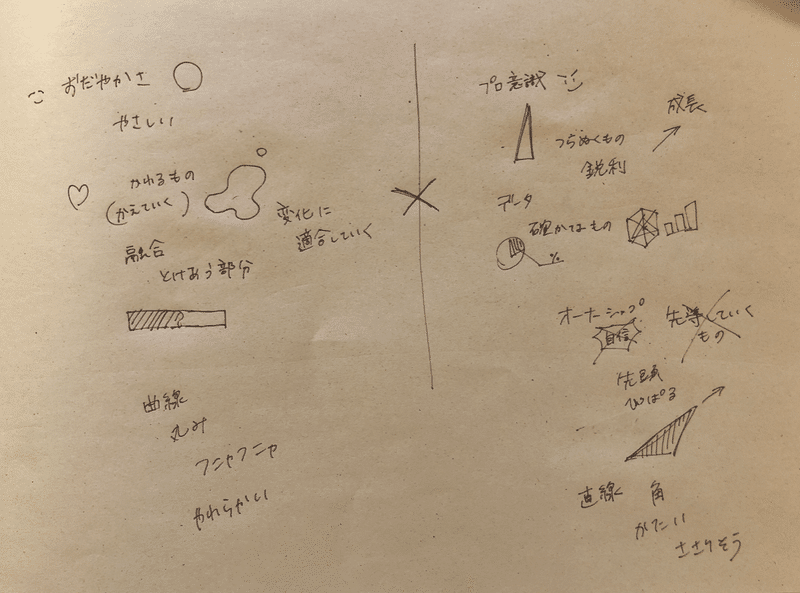 おだやかさ
やさしい
かわるもの
(かえていく)
変化に
適合していく
融合
とけあう部分
曲線
丸み
フニャフニャ
やわらかい
プロ意識
つらぬくもの
鋭利
成長
データ
確かなもの
%
オーナーシップ
自信
先導していく
もの
先頭
ひっぱる
直線 角
かたい
ささりそう